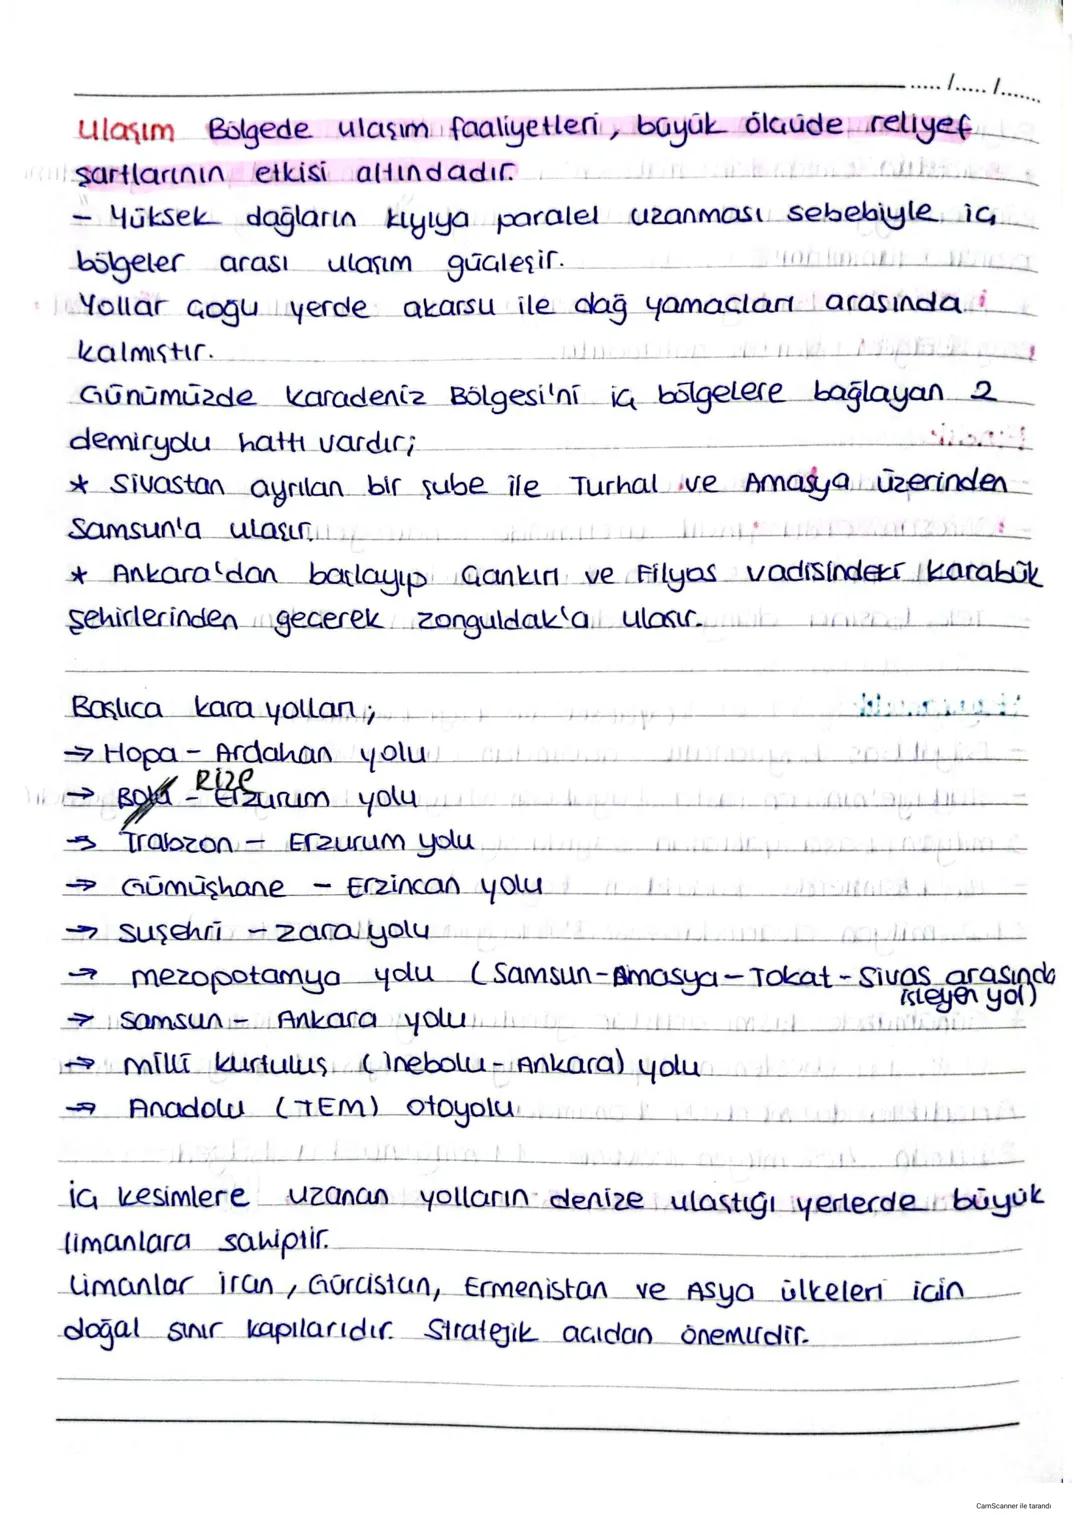 ...../...../.......
Ulaşım Bölgede ulaşım faaliyetleri, büyük ölçüde relıyef
şartlarının etkisi altındadır.
- Yüksek dağların kıyıya paralel uzanması sebebiyle iç
bölgeler arası ulaşım güçleşir.
Yollar çoğu yerde akarsu ile dağ yamaçları arasında
kalmıştır.
Günümüzde Karadeniz Bölgesi'ni iç bölgelere bağlayan 2
demiryolu hattı vardır;
* Sivastan ayrılan bir şube ile Turhal ve Amasya üzerinden
Samsun'a ulaşır.
* Ankara'dan başlayıp Çankırı ve Filyos vadisindeki Karabük
şehirlerinden geçerek Zonguldak'a ulaşır.
Başlıca kara yolları;
→ Hopa - Ardahan yolu
Rize
→ - Erzurum yolu
→ Trabzon - Erzurum yolu
→ Gümüşhane - Erzincan yolu
→ Suşehri - Zara yolu
→ mezopotamya yolu (Samsun-Amasya-Tokat-Sivas arasında
işleyen yol)
→ Samsun - Ankara yolu
→ milli kurtuluş (inebolu-Ankara) yolu
→ Anadolu (TEM) otoyolu
iç kesimlere uzanan yolların denize ulaştığı yerlerde büyük
limanlara sahiptir.
Limanlar İran, Gürcistan, Ermenistan ve Asya ülkeleri için
doğal sınır kapılarıdır. Stratejik açıdan önemlidir.
CamScanner ile tarandı